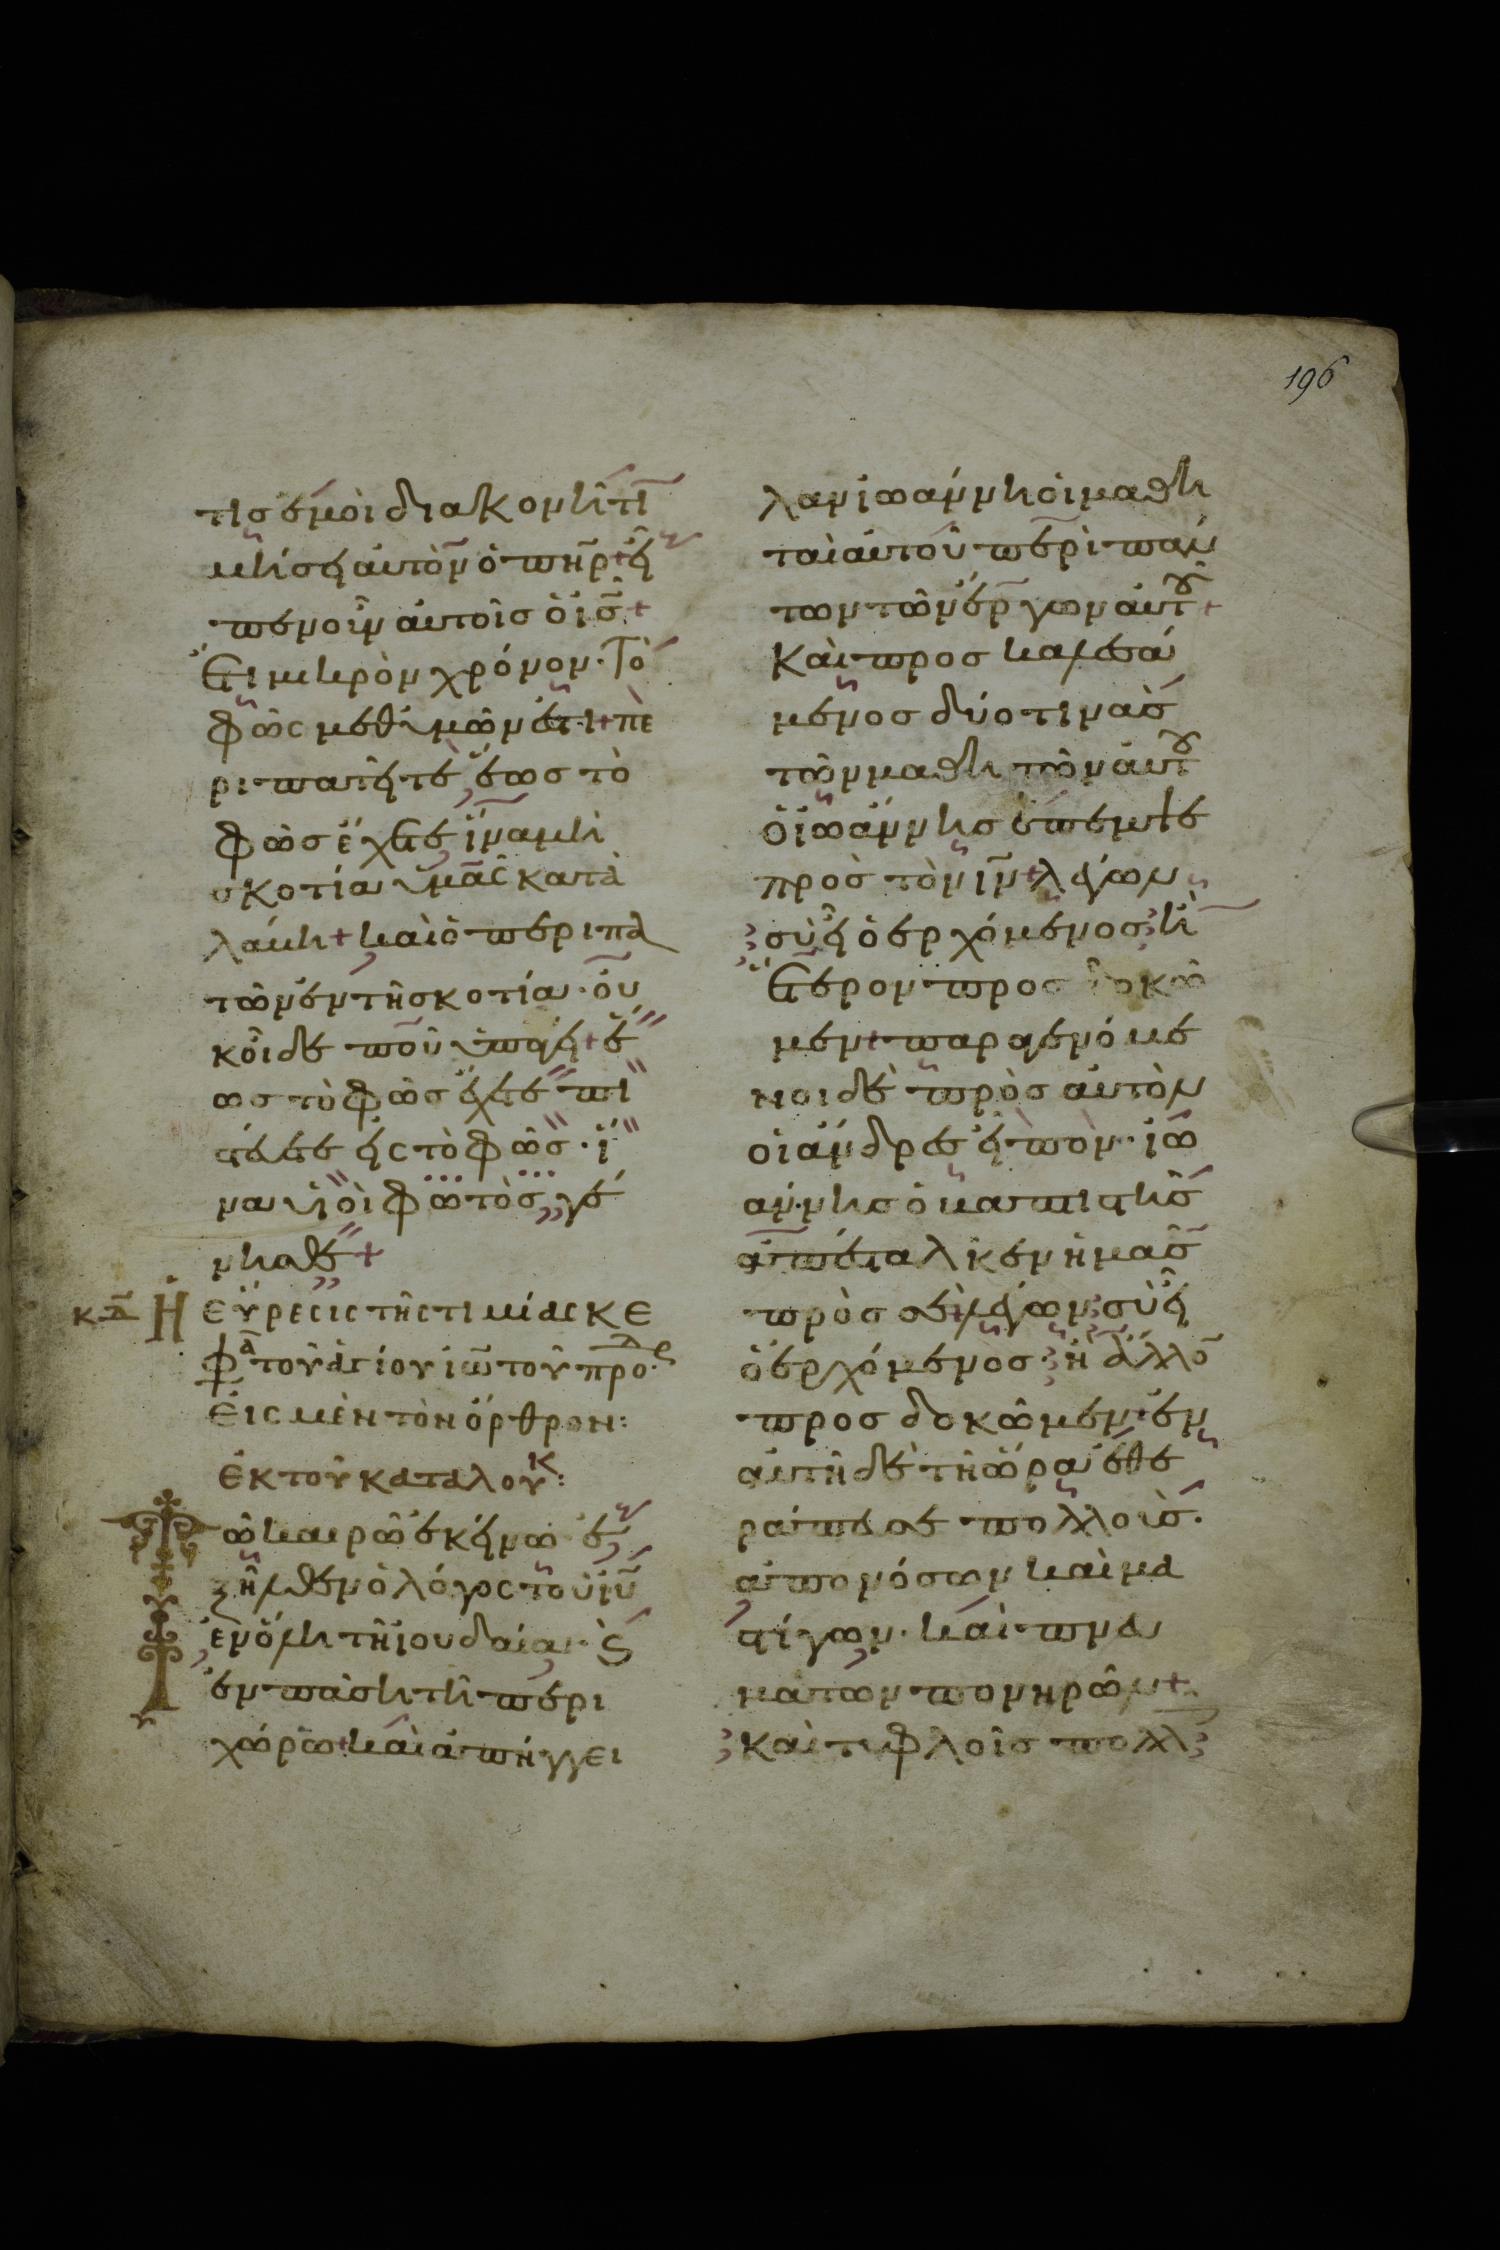 196
τισ ἐμοὶ διακονῆ τι
μήσει αὐτὸν ὁ πῆρ + εἶ
πεν οὖν αὐτοῖσ ὁ ισ +
Ἔτι μικρὸν χρόνον · Τὸ
φῶς μεθ ὑμῶν ἐστι + πε
ριπατεῖτε ἕωσ τὸ
φῶσ ἔχετε ἵνα μὴ
σκοτία ὑμᾶς κατα
λάβη + καὶ ὁ περιπα
τῶν ἐν τῆ σκοτία · οὐ
κ οἶδε ποῦ ὑπάγει + ἕ
ωσ τὸ φῶσ ἔχετε πι
στεύετε εἰς τὸ φῶσ · ἵ
να υἱοὶ φωτὸσ γέ
νησθε +
κδ Ἡ εὕρεσις τῆς τιμίας κε
φα τοῦ ἁγίου ἰω τοῦ προδρ
εἰς μὲν τὸν ὄρθρον :
ἐκ τοῦ κατα λουκ :
Τῶ καιρῶ ἐκείνω ἐ
ξῆλθεν ὁ λόγος τοῦ ιυ
ἐν ὅλη τῆ ἰουδαία · Ϛ
ἐν πάση τῆ περι
χώρω + καὶ ἀπήγγει
λαν ἰωάννη οἱ μαθη
ταὶ αὐτοῦ περὶ παν
των τῶν ἔργων αὐτοῦ +
Καὶ προσκαλεσά
μενοσ δύο τινὰσ
τῶν μαθητῶν αὐτοῦ
ὁ ἰωάννησ ἔπεμψε
πρὸσ τὸν ιν + λέγων
σὺ εἶ ὁ ἐρχόμενοσ ἢ
Ἕτερον προσδοκῶ
μεν + παραγενόμε
νοι δὲ πρὸσ αὐτὸν
οἱ άνδρεσ εἶπον · ἰω
άννησ ὁ βαπτιστὴσ
ἀπέσταλκεν ἡμᾶσ
πρὸσ σὲ λέγων σὺ εἶ
ὁ ἐρχόμενοσ · ἢ ἄλλον
προσδοκῶμεν · ἐν
αὐτῆ δὲ τῆ ὥρα ἐθε
ράπευσε πολλοὺσ ·
ἀπὸ νόσων καὶ μα
στίγων · καὶ πνευ
μάτων πονηρῶν +
Καὶ τυφλοῖσ πολλ